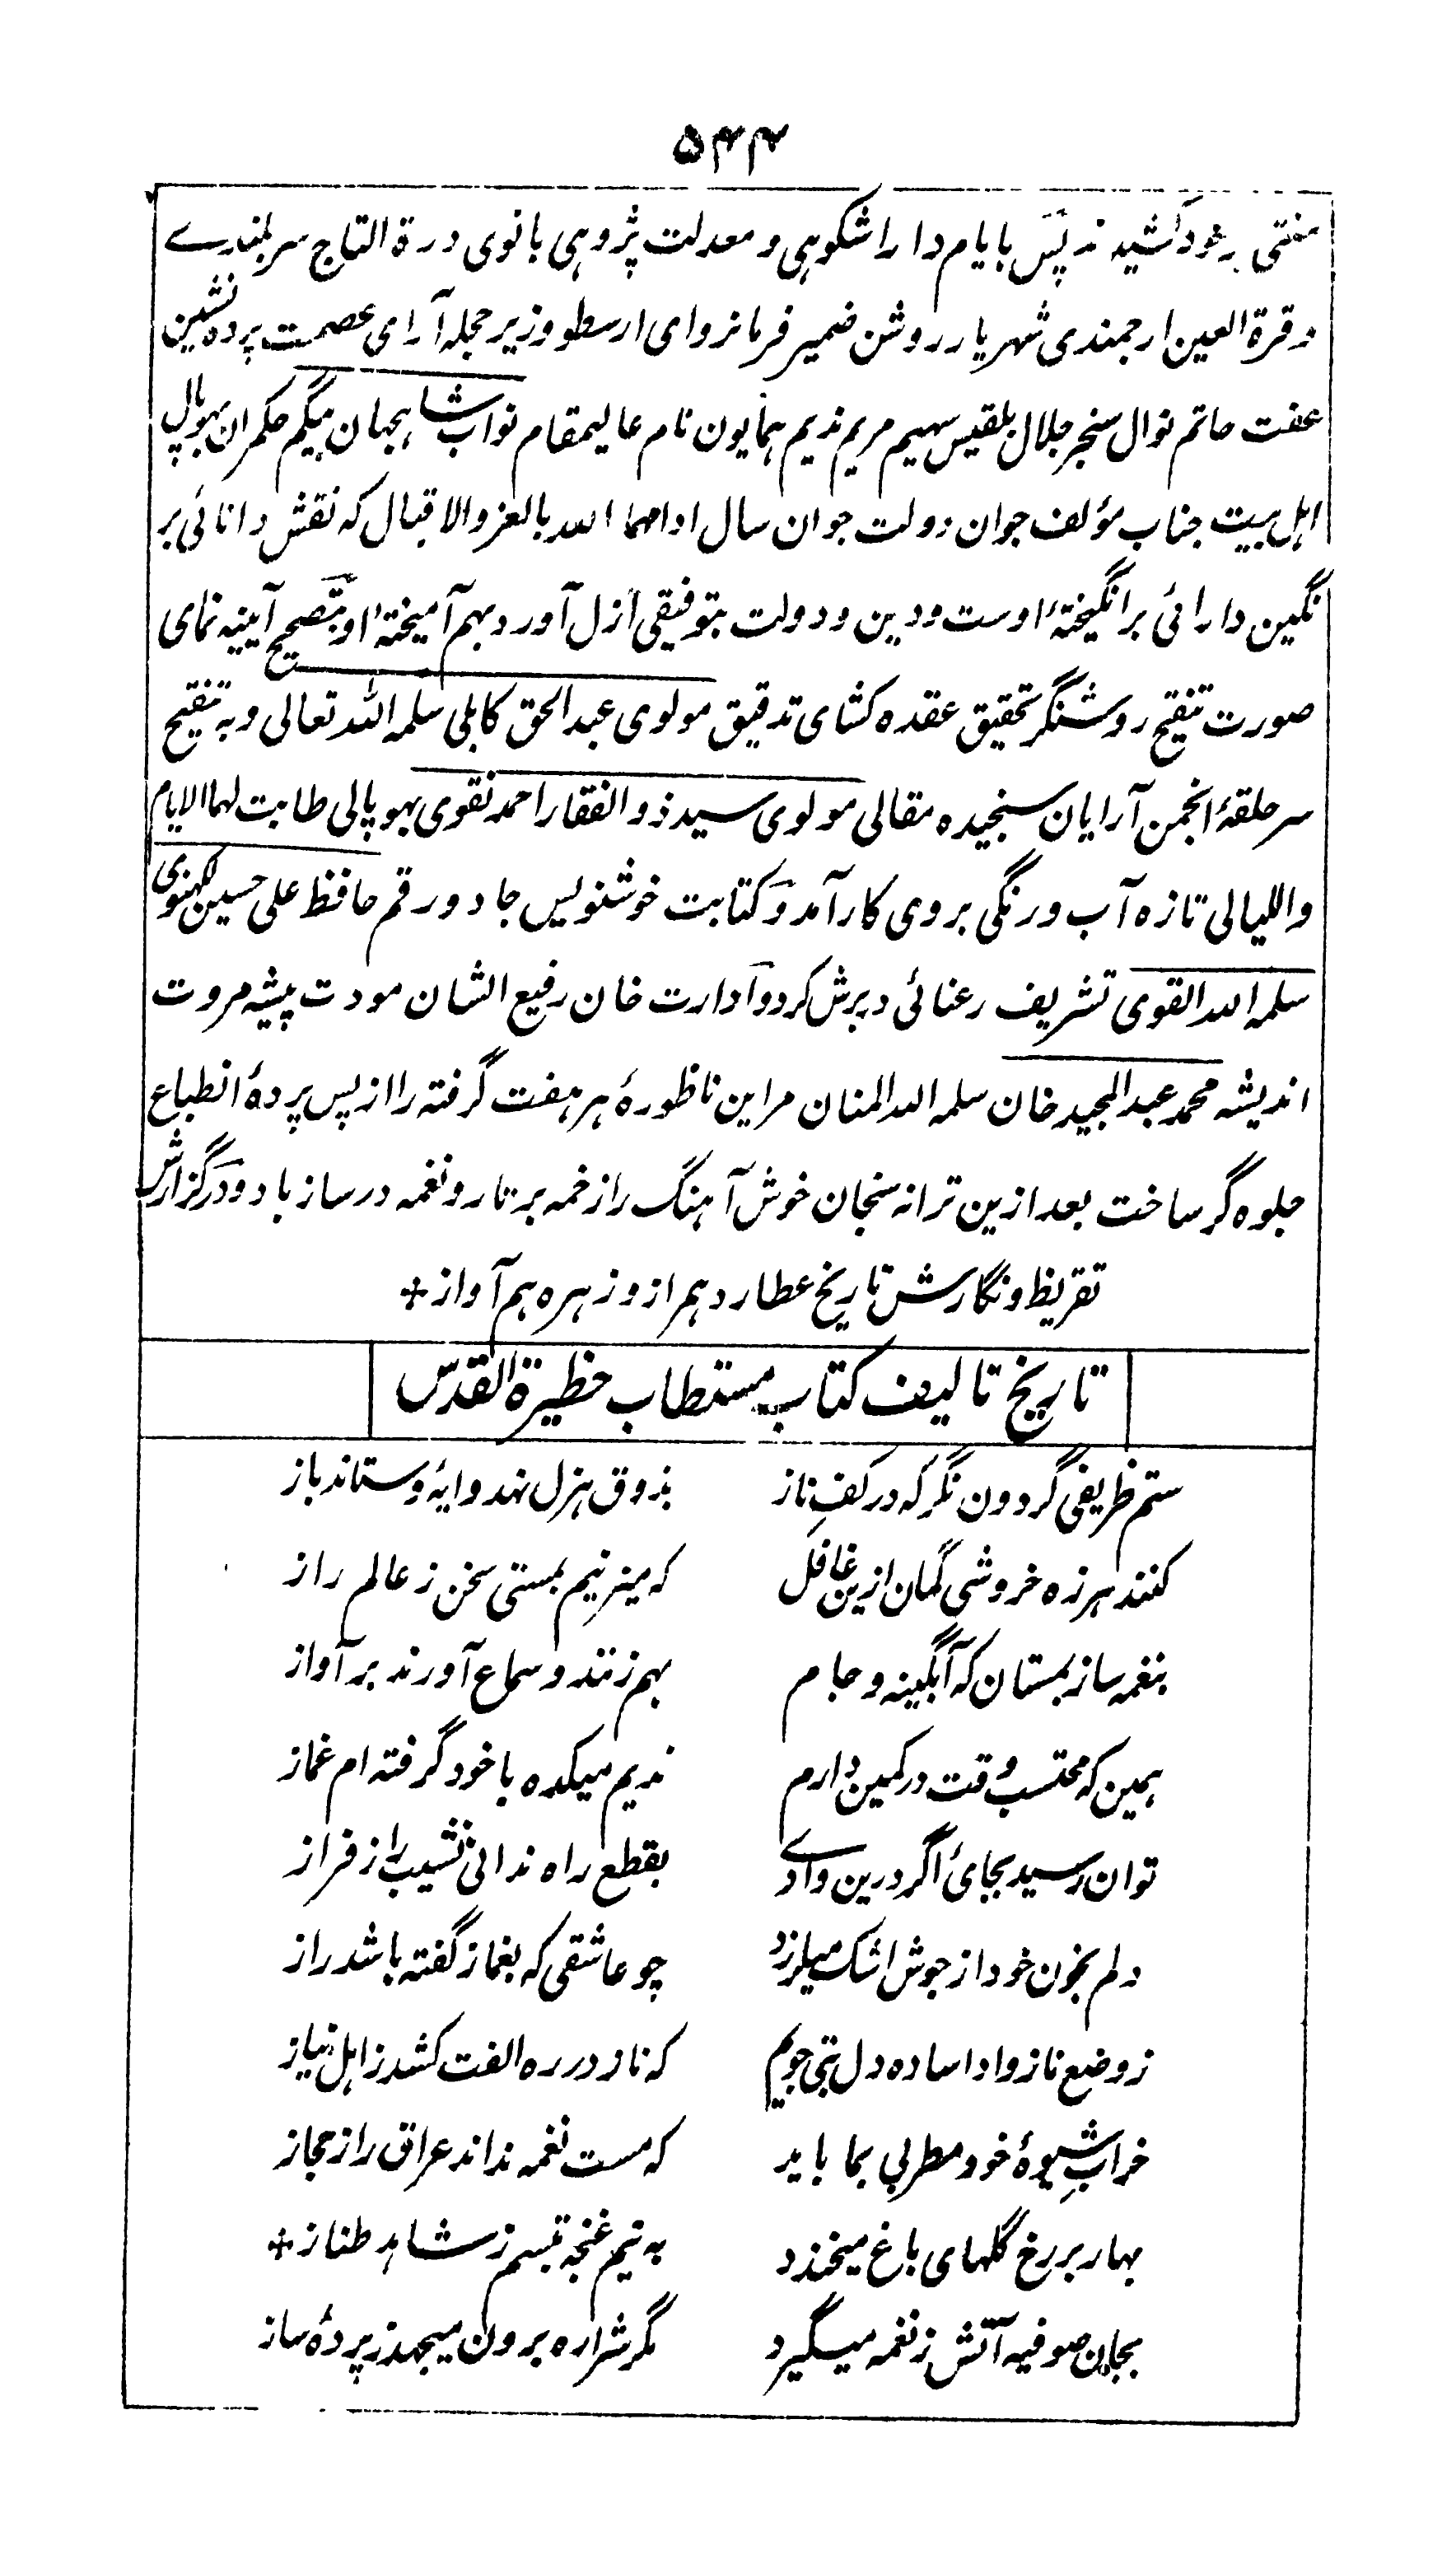 ۵۴۴
منتی برخود کشیدند پس بایام دارا شکوهی و معدلت پژوهی بانوی درة التاج سربلندے
و قرة العین ارجمندی شهریار روشن ضمیر فرمانروای ارسطو وزیر حجله آرای عصمت پرده نشین
عفت حاتم نوال سنجر جلال بلقیس سهیم مریم ندیم همایون نام عالیمقام نواب شاهجهان بیگم حکمران بهوپال
اهل بیت جناب مؤلف جوان دولت جوان سال ادامهما الله بالعز والاقبال که نقش دانائی بر
نگین دارائی برانگیختهٔ اوست و دین و دولت بتوفیقی ازل آورد بهم آمیختهٔ او بتصحیح آیینه نمای
صورت تنقیح روشنگر تحقیق عقده کشای تدقیق مولوی عبدالحق کابلی سلمه الله تعالی و به تنقیح
سرحلقهٔ انجمن آرایان سنجیده مقالی مولوی سید ذوالفقار احمد نقوی بهوپالی طابت لهما الایام
واللیالی تازه آب و رنگی بروی کار آمد و کتابت خوشنویس جادو رقم حافظ علی حسین لکهنوی
سلمه الله القوی تشریف رعنائی دربرش کرد و ادارت خان رفیع الشان مودت پیشه مروت
اندیشه محمد عبدالمجید خان سلمه الله المنان مر این ناظورهٔ هر هفت گرفته را از پس پردهٔ انطباع
جلوه گر ساخت بعد ازین ترانه سنجان خوش آهنگ را زخمه بر تار و نغمه در ساز باد و در گزارش
تقریظ و نگارش تاریخ عطارد همراز و زهره هم آواز +
تاریخ تالیف کتاب مستطاب حظیرة القدس
ستم ظریفی گردون نگر که در کف ناز بذوق هزل نهد و ایه و ستاند باز
کنند هرزه خروشی گمان ازین غافل که میزنیم بمستی سخن ز عالم راز
بنغمه ساز بمستان که آبگینه و جام بهم زنند و سماع آورند بر آواز
همین که محتسب وقت در کمین دارم ندیم میکده با خود گرفته ام غماز
توان رسید بجائ اگر درین وادے بقطع راه ندانی نشیب را ز فراز
دلم بخون خود از جوش اشک میلرزد چو عاشقی که بغماز گفته باشد راز
ز وضع ناز و ادا ساده دل بتی جویم که ناز در ره الفت کشد ز اهل نیاز
خراب شیوهٔ خود مطربی بما باید که مست نغمه نداند عراق را ز حجاز
بهار بر رخ گلهای باغ میخندد به نیم غنچه تبسم ز شاهد طناز +
بجان صوفیه آتش ز نغمه میگیرد مگر شراره برون میجهد ز پردهٔ ساز